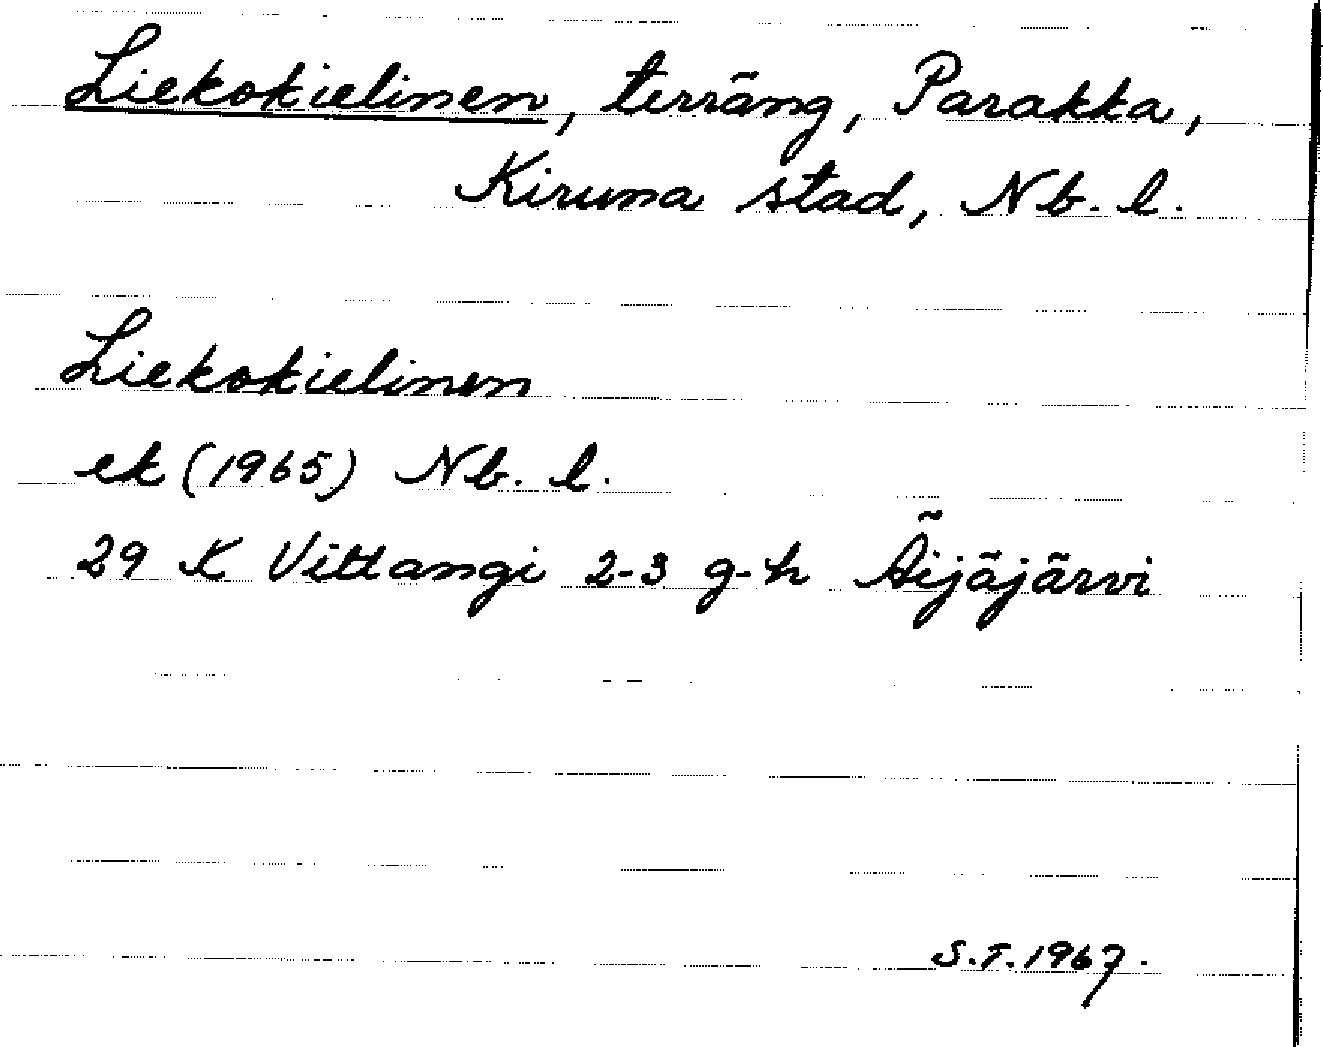 Liekokielinen, terräng, Parakka,
Kiruna stad, Nb. l.
Liekokielinen
ek (1965) Nb. l.
29 K Vittangi 2-3 g-h Äijäjärvi
S.T. 1967.